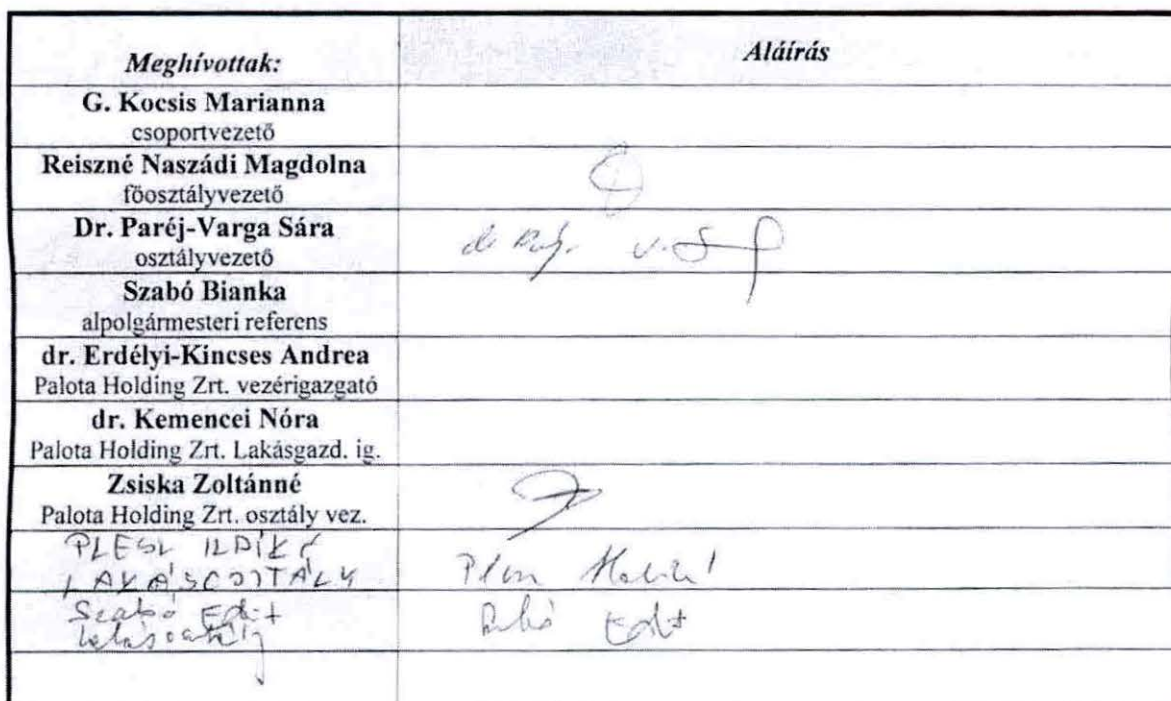 Meghívottak:
Aláírás
G. Kocsis Marianna
csoportvezető
Reiszné Naszádi Magdolna
főosztályvezető
Dr. Paréj-Varga Sára
osztályvezető
Szabó Bianka
alpolgármesteri referens
dr. Erdélyi-Kincses Andrea
Palota Holding Zrt. vezérigazgató
dr. Kemencei Nóra
Palota Holding Zrt. Lakásgazd. ig.
Zsiska Zoltánné
Palota Holding Zrt. osztály vez.
ILDIKÓ
LAKÁSOSZTÁLY
Szabó Edit
Edit